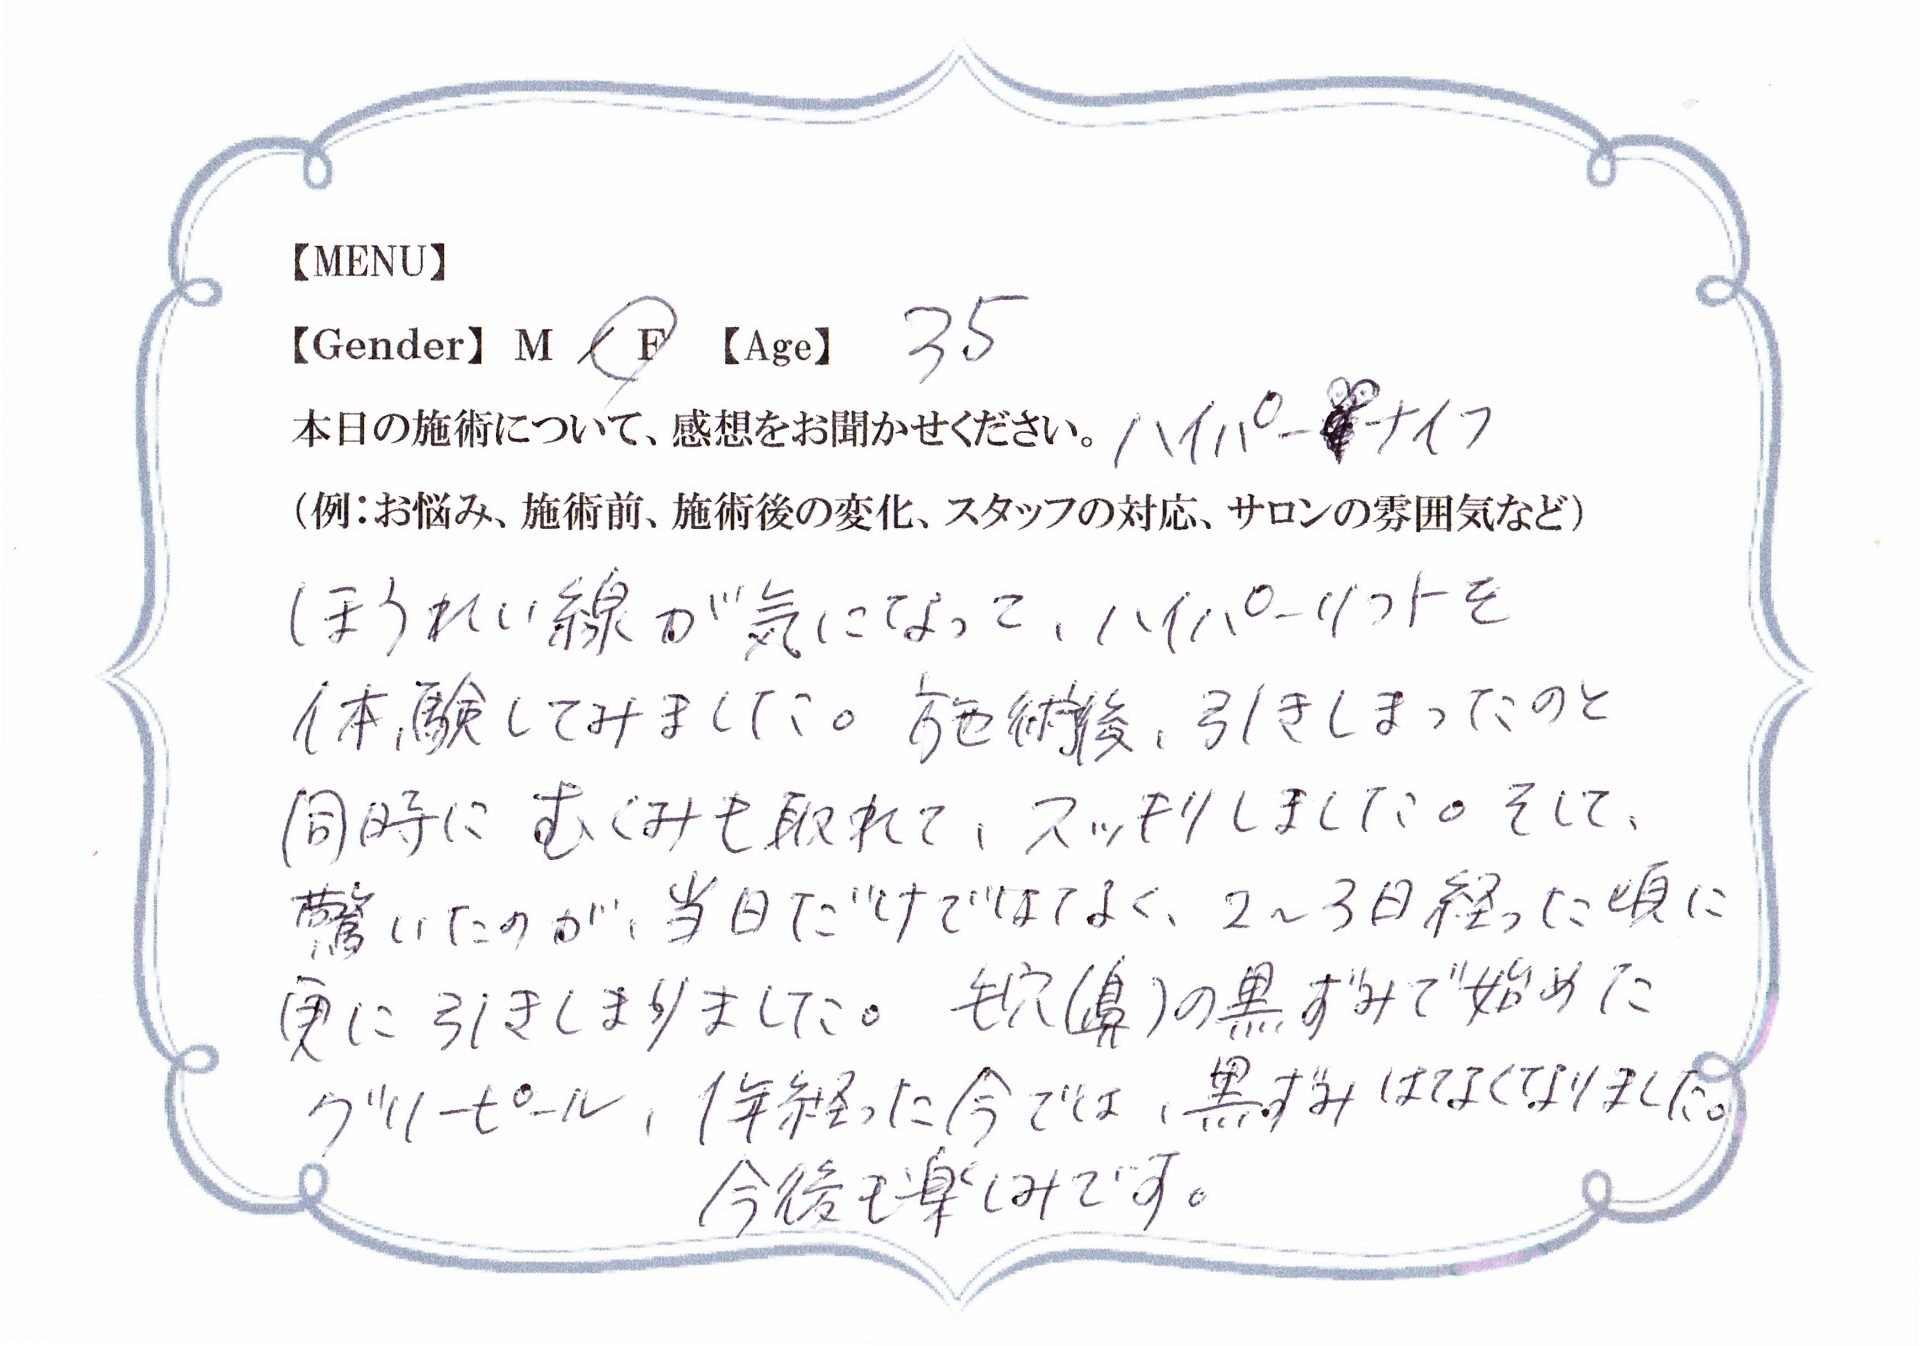 【MENU】
【Gender】 M F 【Age】 35
本日の施術について、感想をお聞かせください。 ハイパーナイフ
(例：お悩み、施術前、施術後の変化、スタッフの対応、サロンの雰囲気など)
ほうれい線が気になって、ハイパーリフトを
体験してみました。施術後、引きしまったのと
同時にむくみも取れて、スッキリしました。そして、
驚いたのが、当日だけではなく、2〜3日経った頃に
更に引きしまりました。毛穴(鼻)の黒ずみで始めた
グリーピール、1年経った今では、黒ずみはなくなりました。
今後も楽しみです。